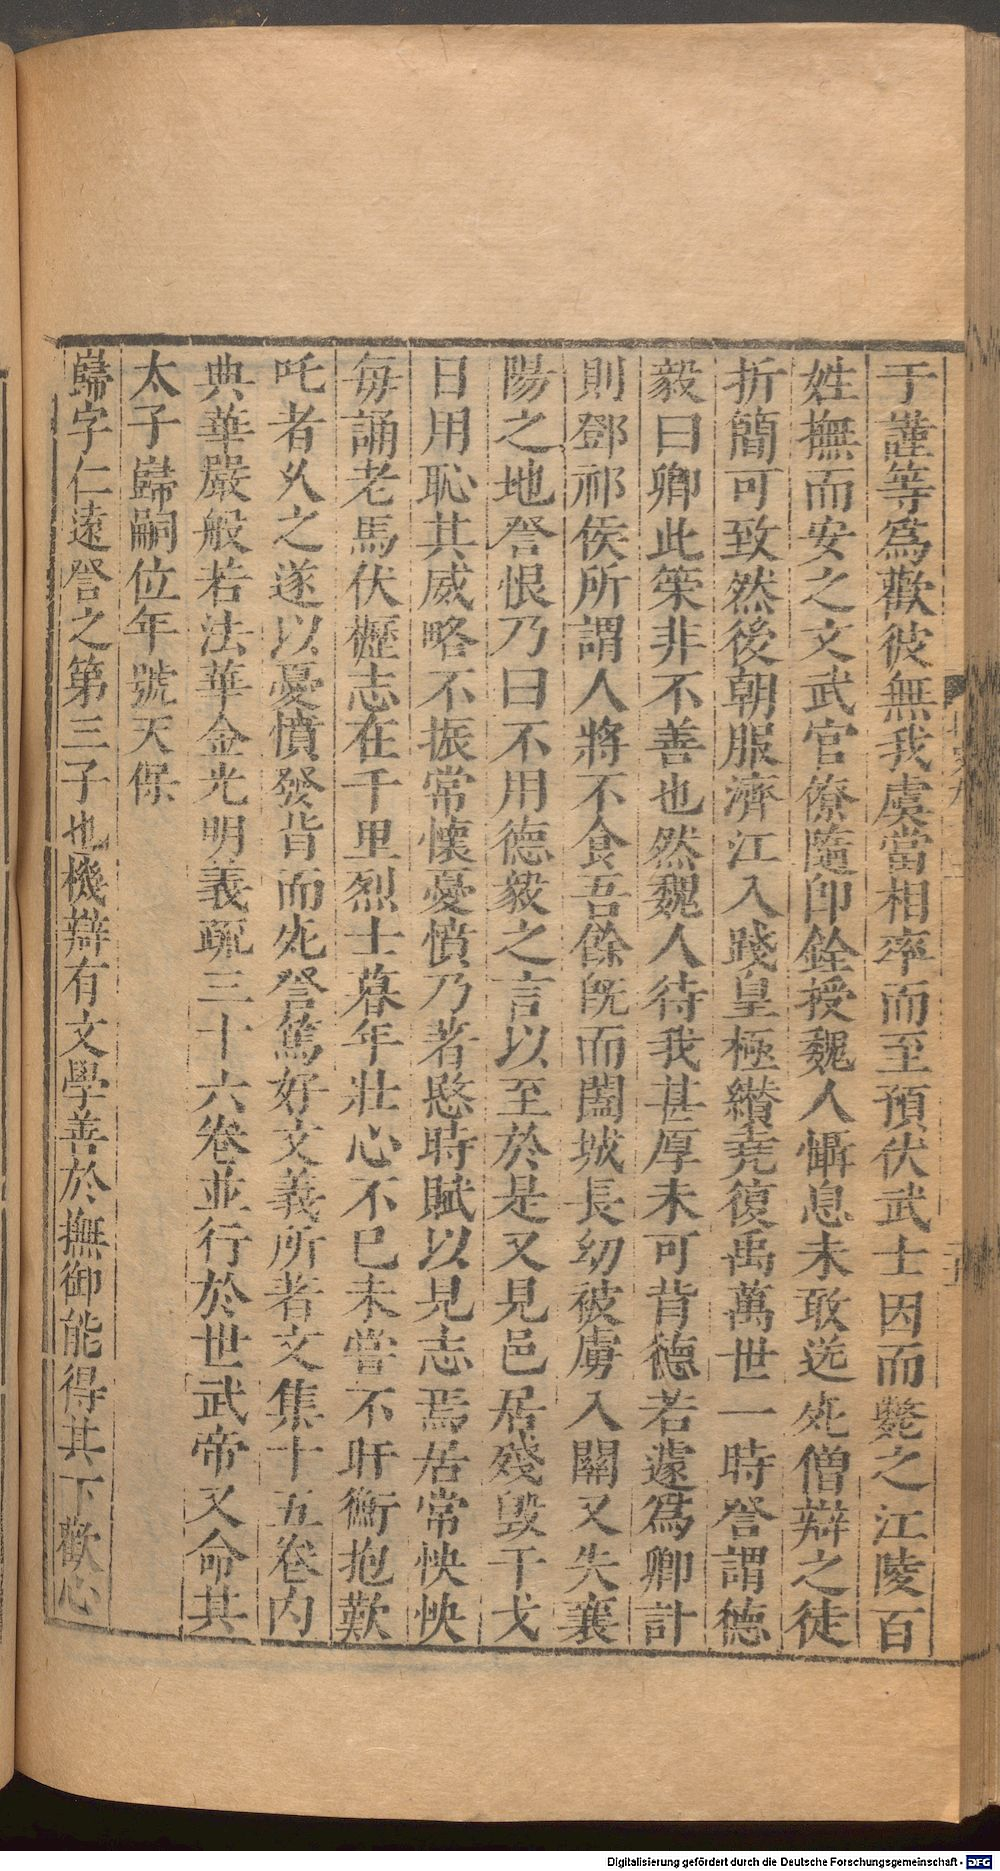 于謹等爲歡彼無我虞當相率而至預伏武士因而斃之江陵百
姓撫而安之文武官僚隨即銓授魏人懾息未敢送死僧辯之徒
折簡可致然後朝服濟江入踐皇極纘堯復禹萬世一時詧謂德
毅曰卿此策非不善也然魏人待我甚厚未可背德若遽爲卿計
則鄧祁侯所謂人將不食吾餘旣而闔城長幼被虜入關又失襄
陽之地詧恨乃曰不用德毅之言以至於是又見邑居殘毀干戈
日用恥其威略不振常懷憂憤乃著愍時賦以見志焉居常怏怏
每誦老馬伏櫪志在千里烈士暮年壯心不已未嘗不盱衡抱歎
吒者乆之遂以憂憤發背而死詧篤好文義所著文集十五卷内
典華嚴般若法華金光明義疏三十六卷並行於世武帝又命其
太子巋嗣位年號天保
巋字仁遠詧之第三子也機辯有文學善於撫御能得其下歡心
Digitalisierung gefördert durch die Deutsche Forschungsgemeinschaft - DFG